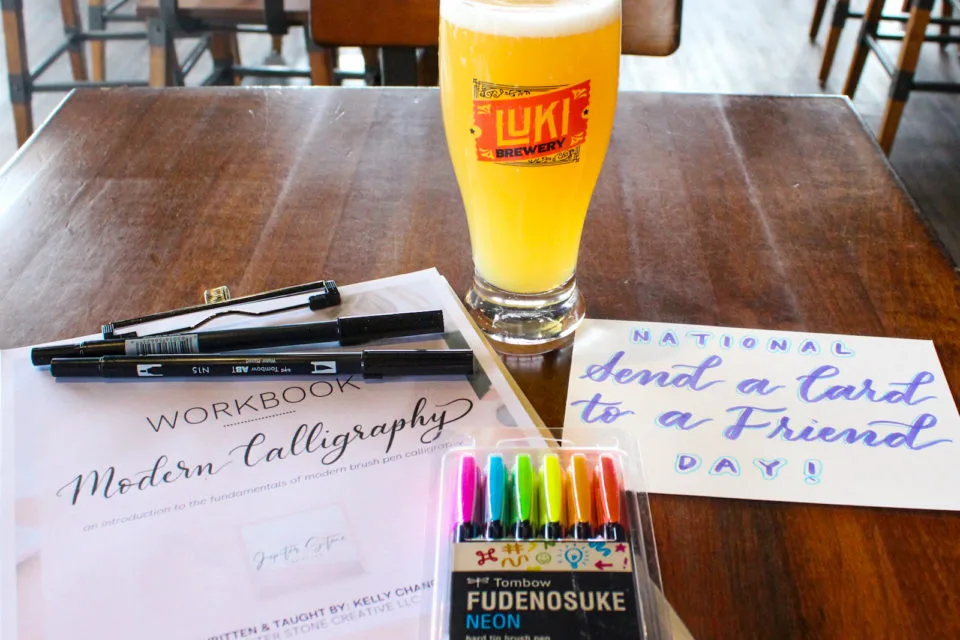 LUKI
BREWERY
N15 Tombow ABT
WORKBOOK
Modern Calligraphy
an introduction to the fundamentals of modern brush pen
Jupiter Stone
WRITTEN & TAUGHT BY: KELLY
STONE CREATIVE LLC
NATIONAL
Send a Card
to a Friend
DAY!
Tombow
FUDENOSUKE
NEON
hard tip brush pen